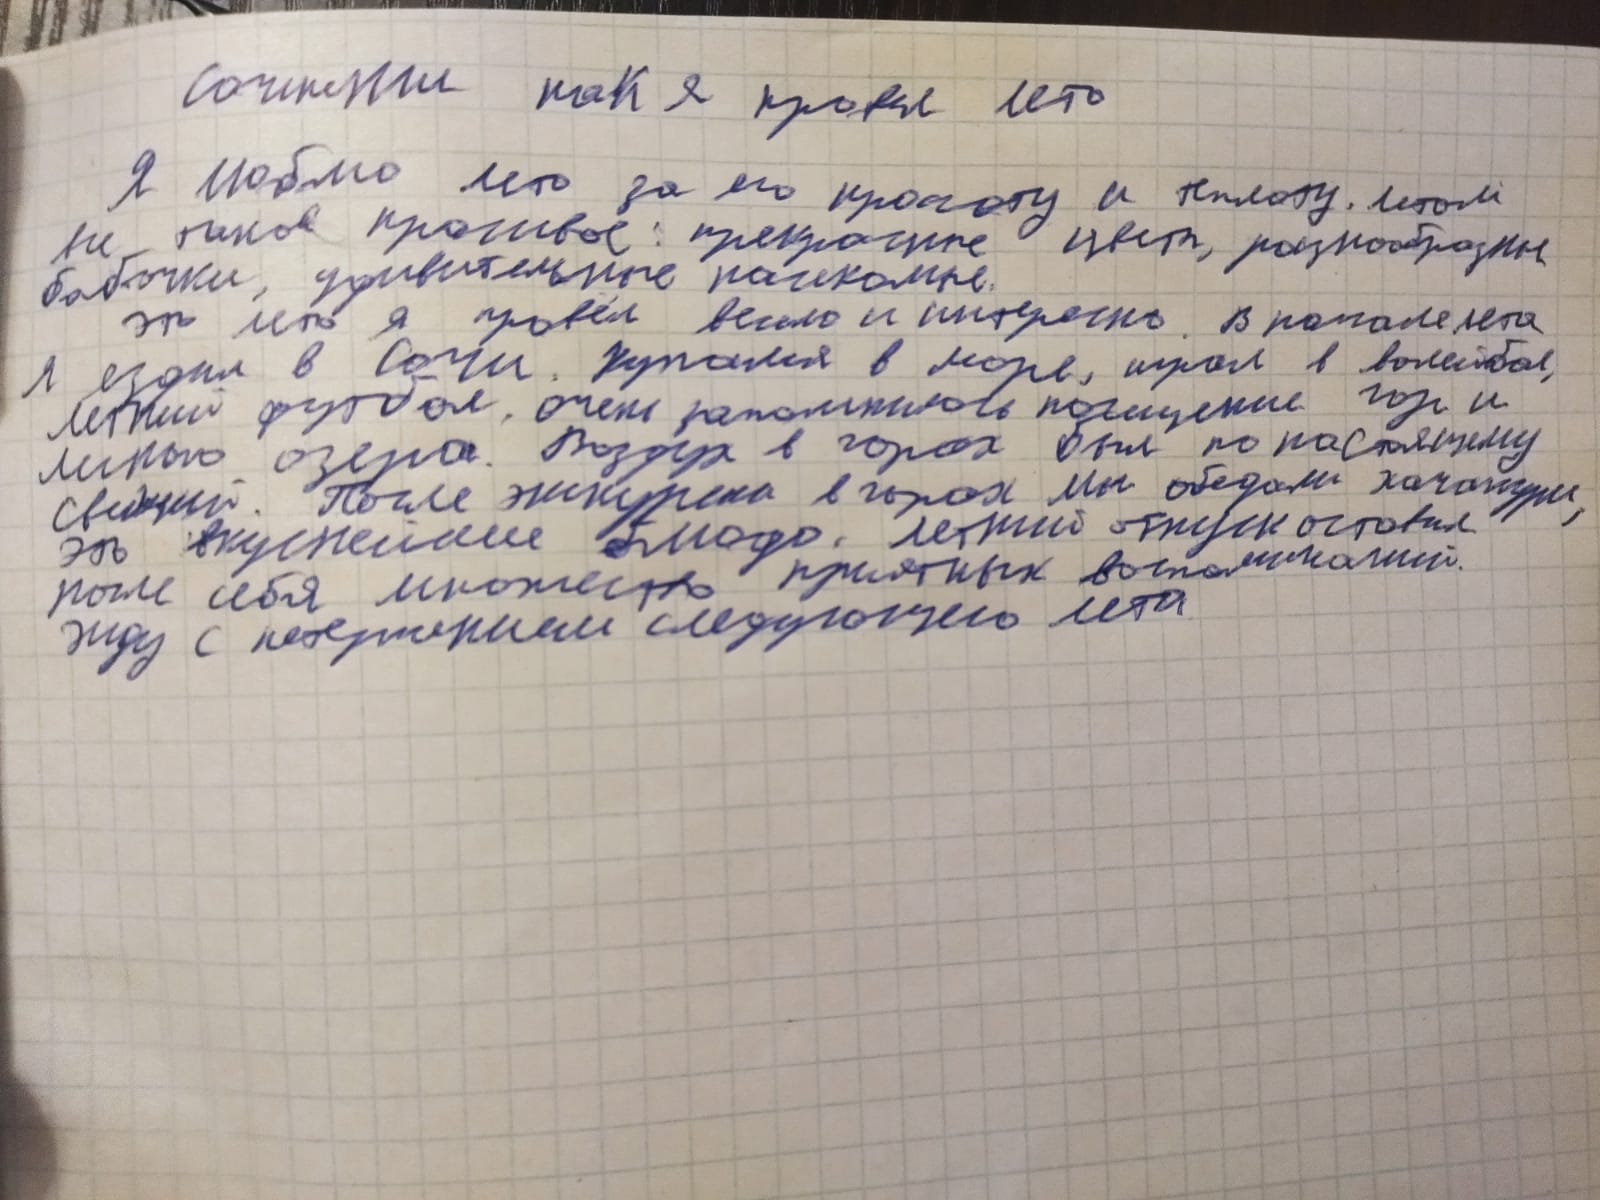 Сочинении как я провел лето
Я люблю лето за его красоту и теплоту. Летом
все такое красивое: прекрасные цветы, разнообразные
бабочки, удивительные насекомые.
Это лето я провёл весело и интересно. В начале лета
я ездил в Сочи. Купался в море, играл в волейбол,
летний футбол. Очень запомнилось посещение гор и
озера. Воздух в горах был по настоящему
свежий. После экскурсии в горах мы обедали хачапури,
это вкуснейшие блюдо. Летний отпуск оставил
после себя множество приятных воспоминаний.
Жду с нетерпением следующего лета